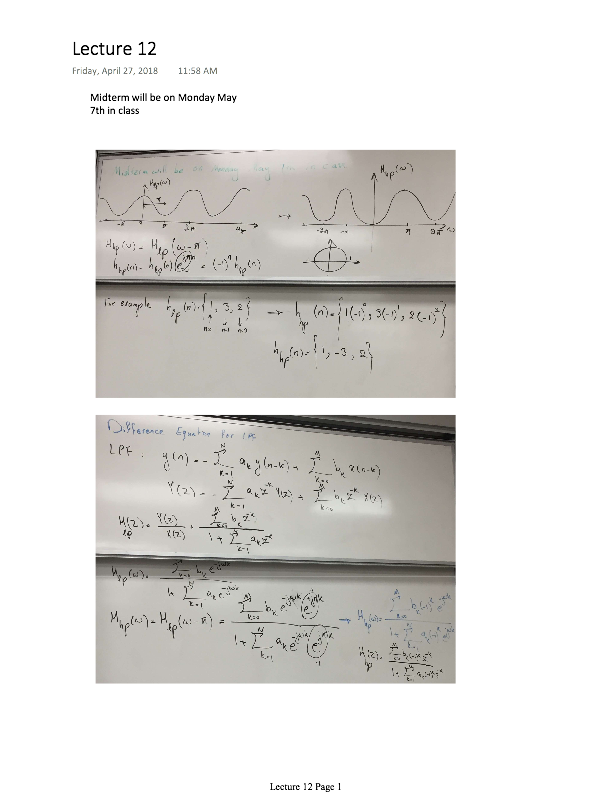 Lecture 12
Friday, April 27, 2018 11:58 AM
Midterm will be on Monday May
7th in class
Midterm will be on Monday May 7th in class
H_lp(ω) H_hp(ω)
-π π 2π ω -2π -π π 2π ω
H_hp(ω) = H_lp(ω-π)
h_hp(n) = h_lp(n)(e^{jπn}) = (-1)^n h_lp(n)
For example h_lp(n) = {1, 3, 2} → h_hp(n) = {1(-1)^0, 3(-1)^1, 2(-1)^2}
n=0 n=1 n=2
h_hp(n) = {1, -3, 2}
Difference Equation for LPF
LPF. y(n) = -∑_{k=1}^{N} a_k y(n-k) + ∑_{k=0}^{M} b_k x(n-k)
Y(z) = -∑_{k=1}^{N} a_k z^{-k} Y(z) + ∑_{k=0}^{M} b_k z^{-k} X(z)
H_lp(z) = Y(z)/X(z) = ∑_{k=0}^{M} b_k z^{-k} / 1 + ∑_{k=1}^{N} a_k z^{-k}
H_lp(ω) = b_k e^{-jωk} / 1 + ∑_{k=1}^{N} a_k e^{-jωk}
H_hp(ω) = H_lp(ω-π) = ∑_{k=0}^{M} b_k e^{-jωk}(e^{jπk}) / 1 + ∑_{k=1}^{N} a_k e^{-jωk}(e^{jπk}) → H_hp(ω) = ∑_{k=0}^{M} b_k(-1)^k e^{-jωk} / 1 + ∑_{k=1}^{N} a_k(-1)^k e^{-jωk}
H_hp(z) = ∑ b_k(-1)^k z^{-k} / 1 + ∑_{k=1}^{N} a_k(-1)^k z^{-k}
Lecture 12 Page 1